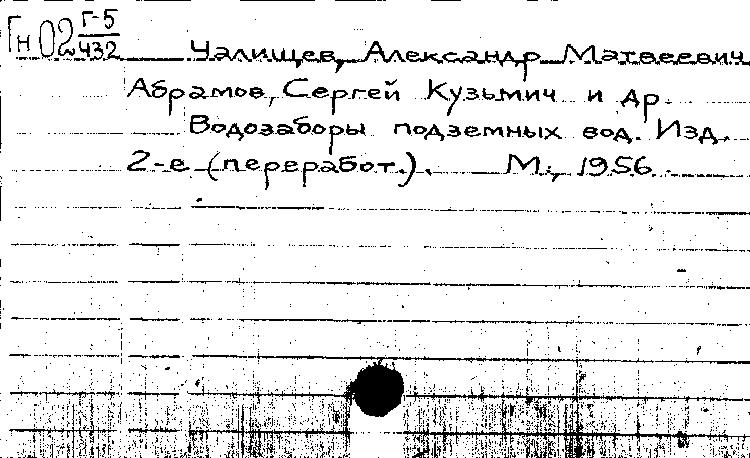 Гн02 Г-5/432
Чалищев, Александр Матвеевич
Абрамов, Сергей Кузьмич и др.
Водозаборы подземных вод. Изд.
2-е (переработ.). М., 1956.